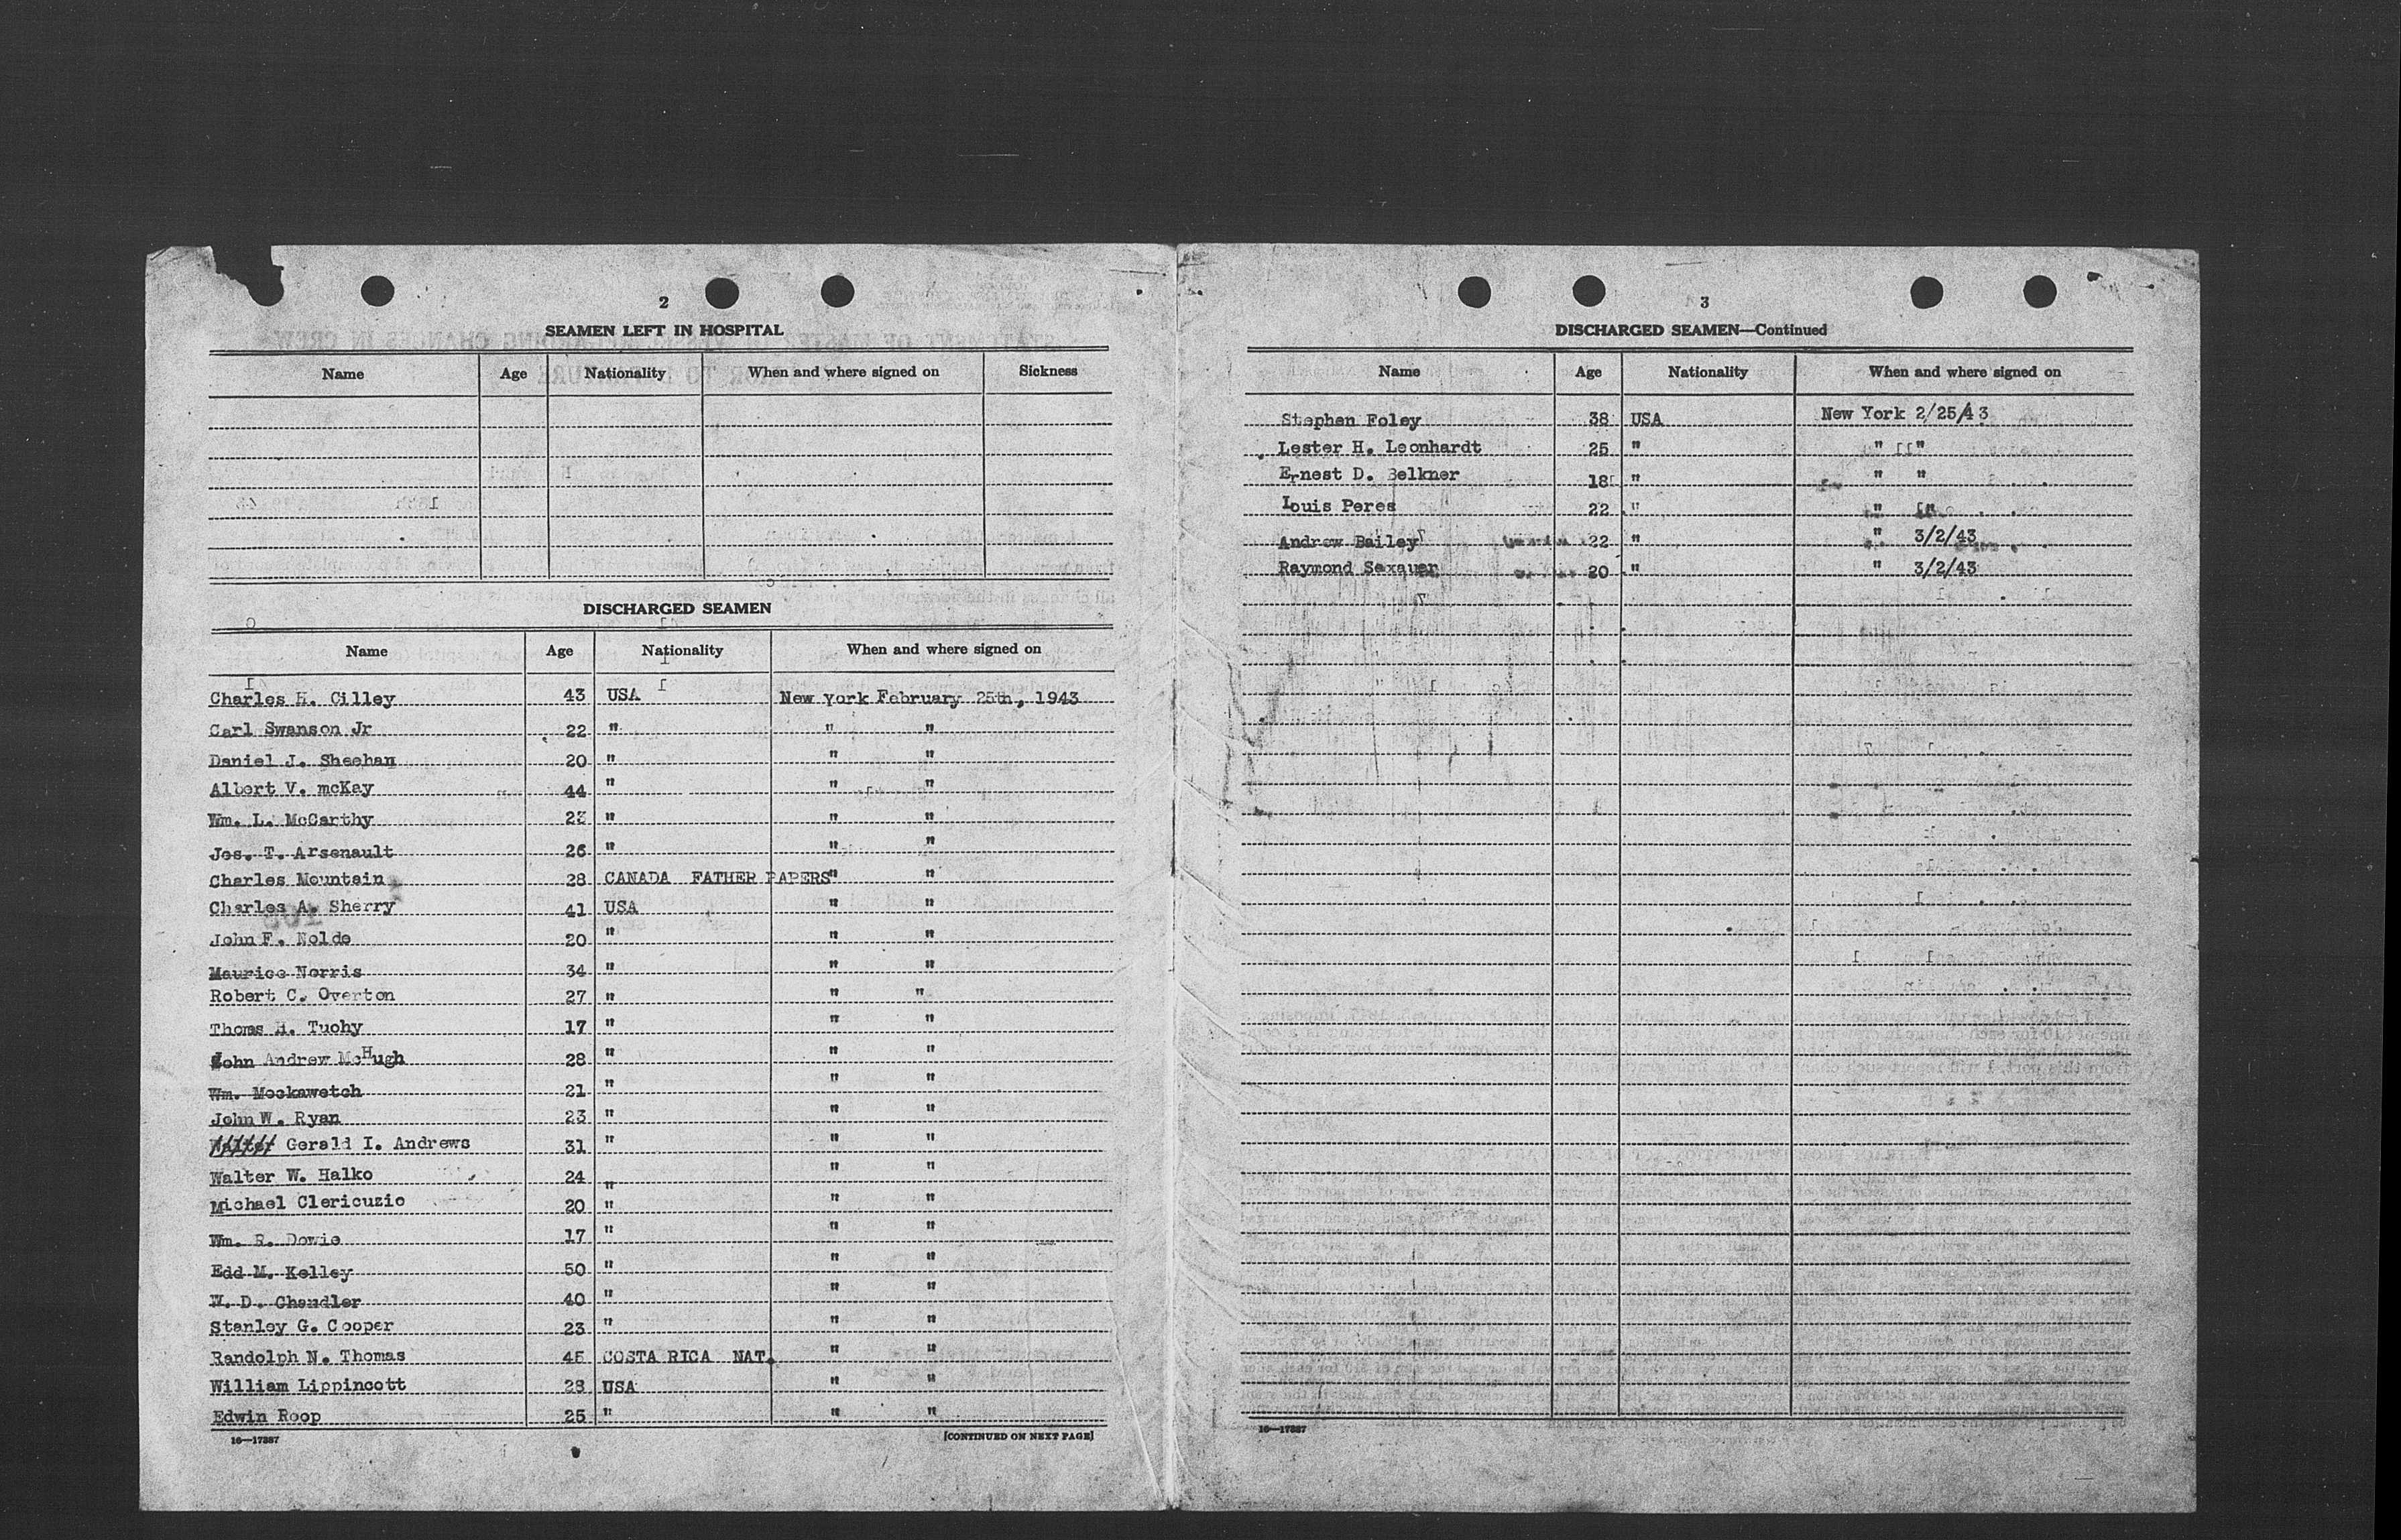 2
SEAMEN LEFT IN HOSPITAL
Name Age Nationality When and where signed on Sickness
DISCHARGED SEAMEN
Name Age Nationality When and where signed on
Charles H. Cilley 43 USA New york February 25th, 1943
Carl Swanson Jr 22 " " "
Daniel J. Sheehan 20 " " "
Albert V. mcKay 44 " " "
Wm. L. McCarthy " " "
Jos. T. Arsenault 26 " " "
Charles Mountain 28 CANADA FATHER PAPERS " "
Charles A. Sherry 41 USA " "
John F. Nolde 20 " " "
Maurice Norris 34 " " "
Robert C. Overton 27 " " "
Thoms H. Tuohy 17 " " "
John Andrew McHugh 28 " " "
Wm. Mockawetch 21 " " "
John W. Ryan 23 " " "
Walter Gerald I. Andrews 31 " " "
Walter W. Halko 24 " " "
Michael Clericuzio 20 " " "
Wm. R. Dowie 17 " " "
Edd M. Kelley 50 " " "
W. D. Chandler 40 " " "
Stanley G. Cooper 23 " " "
Randolph N. Thomas 45 COSTA RICA NAT. " "
William Lippincott 28 USA " "
Edwin Roop 25 " " "
16—17887
[CONTINUED ON NEXT PAGE]
3
DISCHARGED SEAMEN—Continued
Name Age Nationality When and where signed on
Stephen Foley 38 USA New York 2/25/43
Lester H. Leonhardt 25 " " "
Ernest D. Belkner 18 " " "
Louis Peres 22 " " "
Andrew Bailey 22 " " 3/2/43
Raymond Sexauer 20 " " 3/2/43
16—17887